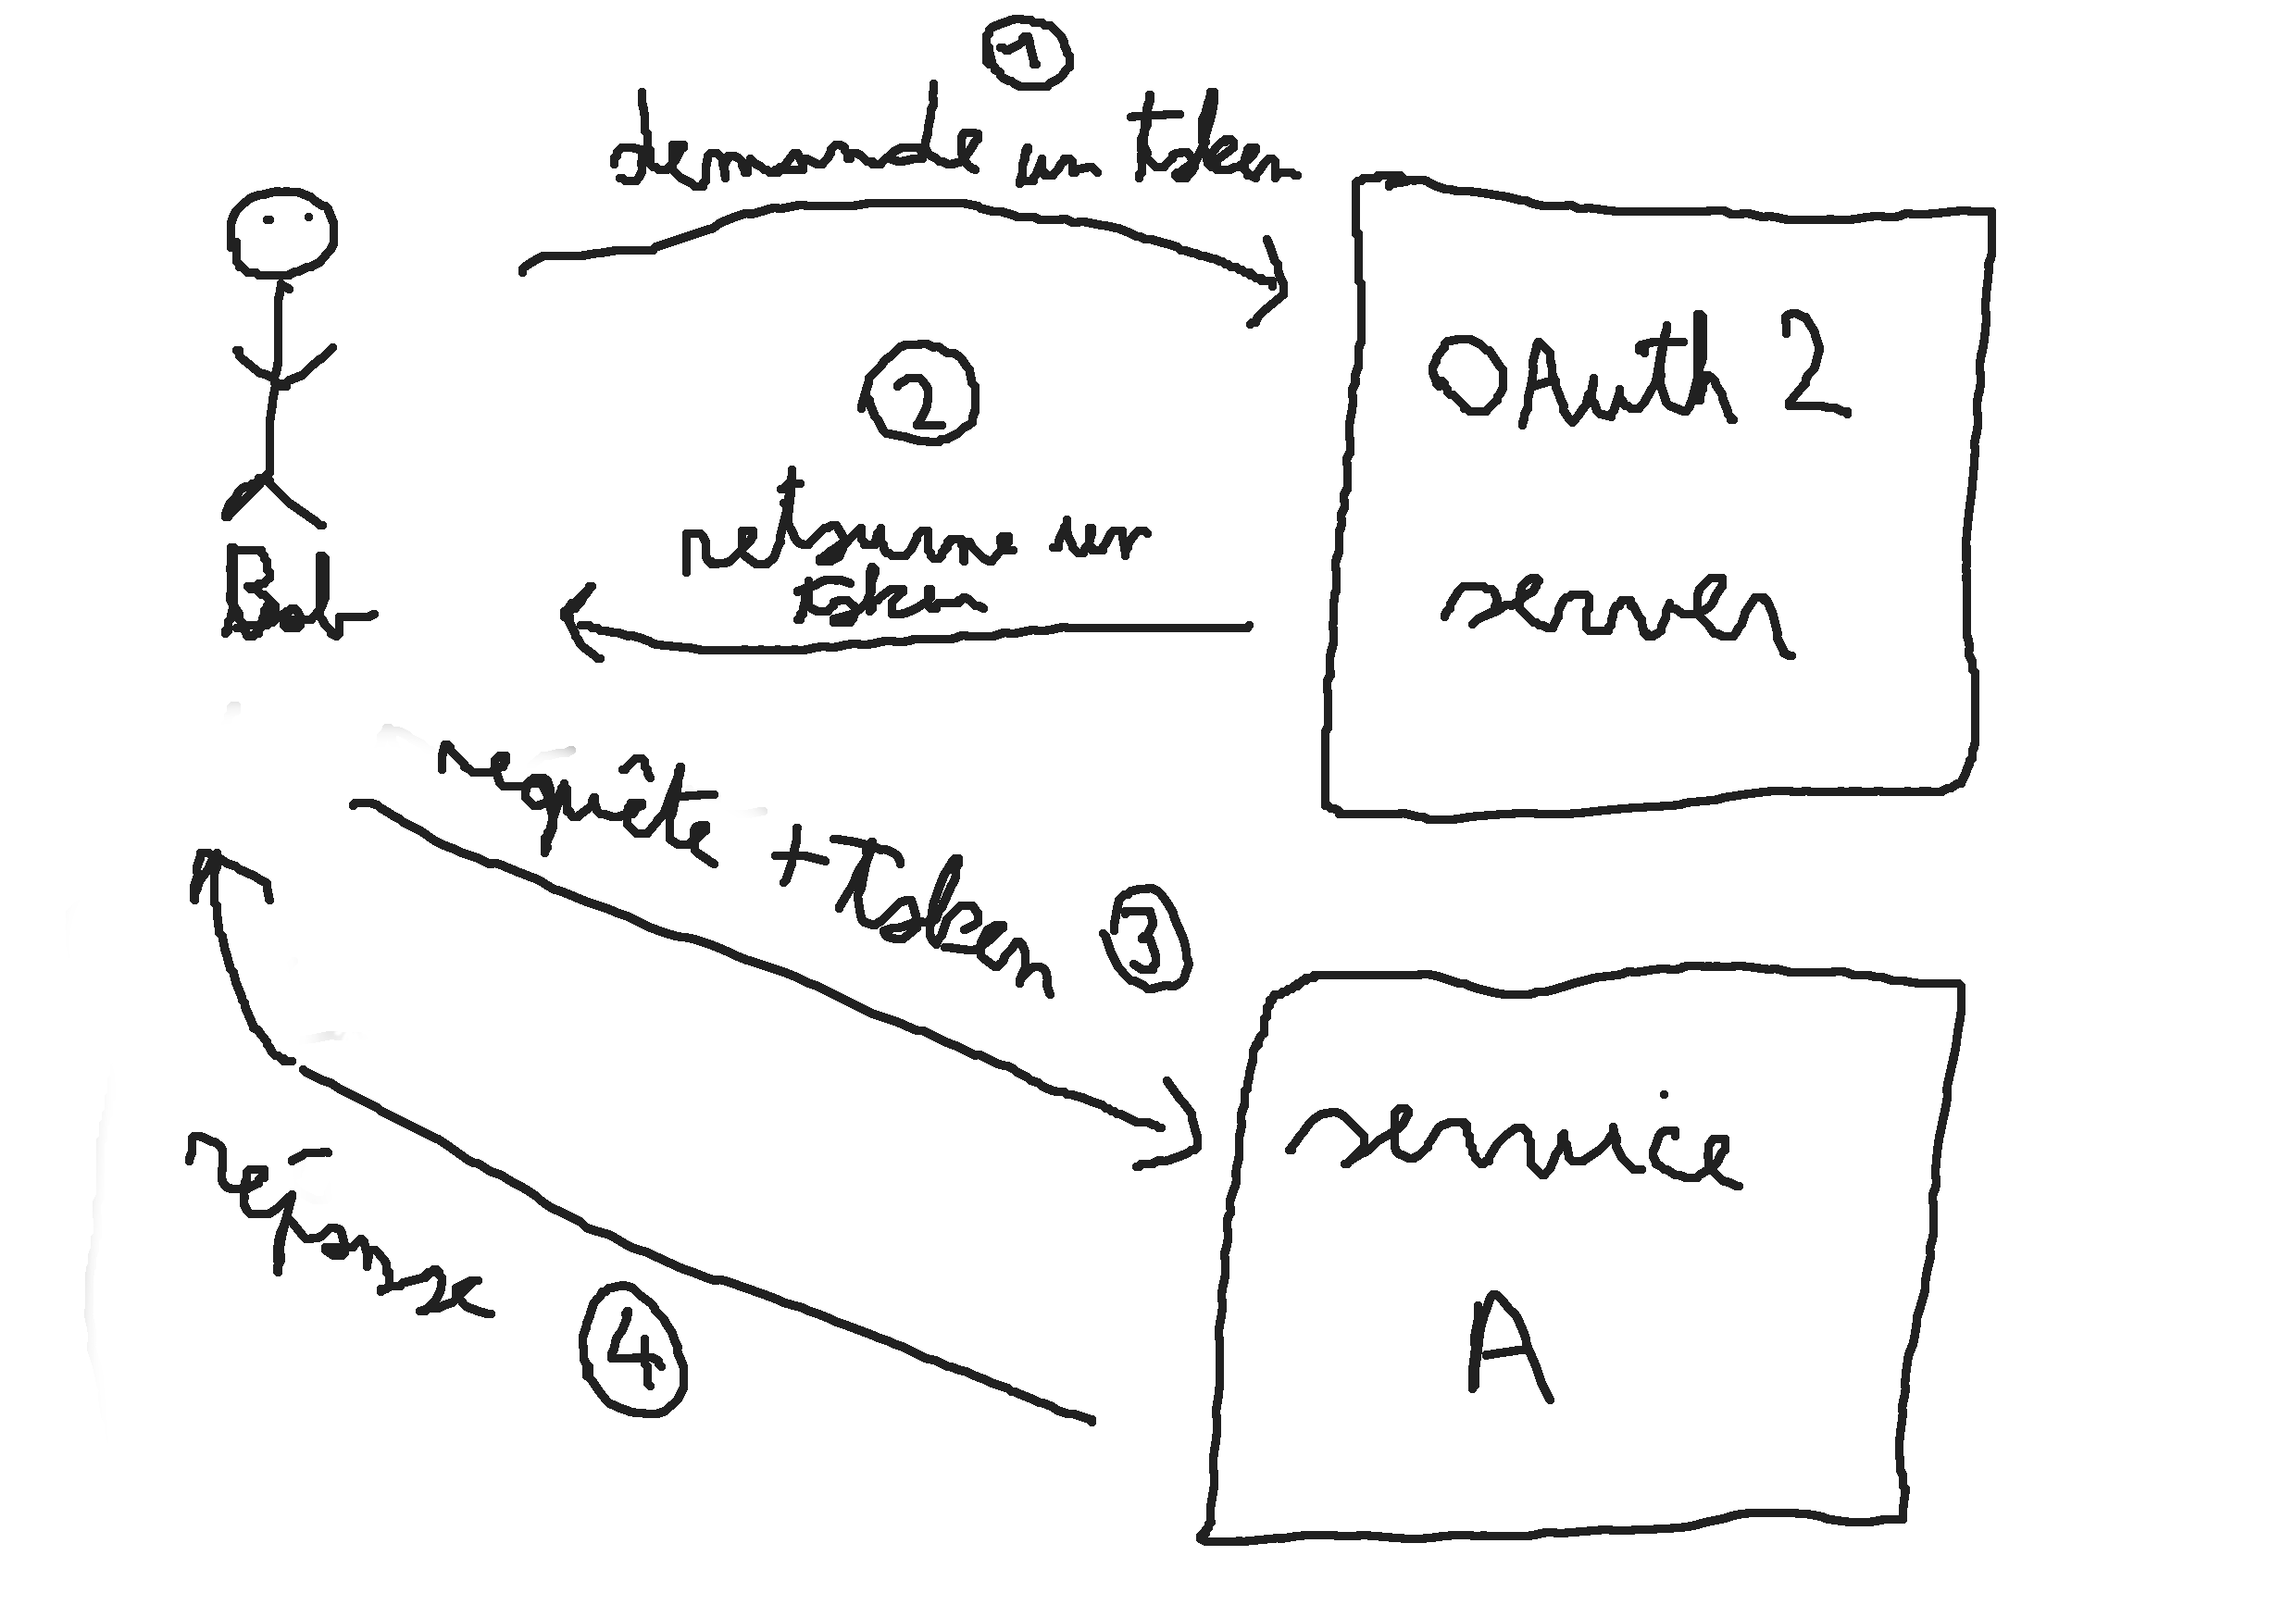 1
demande un token
OAuth 2
server
2
retourne un
token
Bob
requête + Token
3
service
A
réponse
4